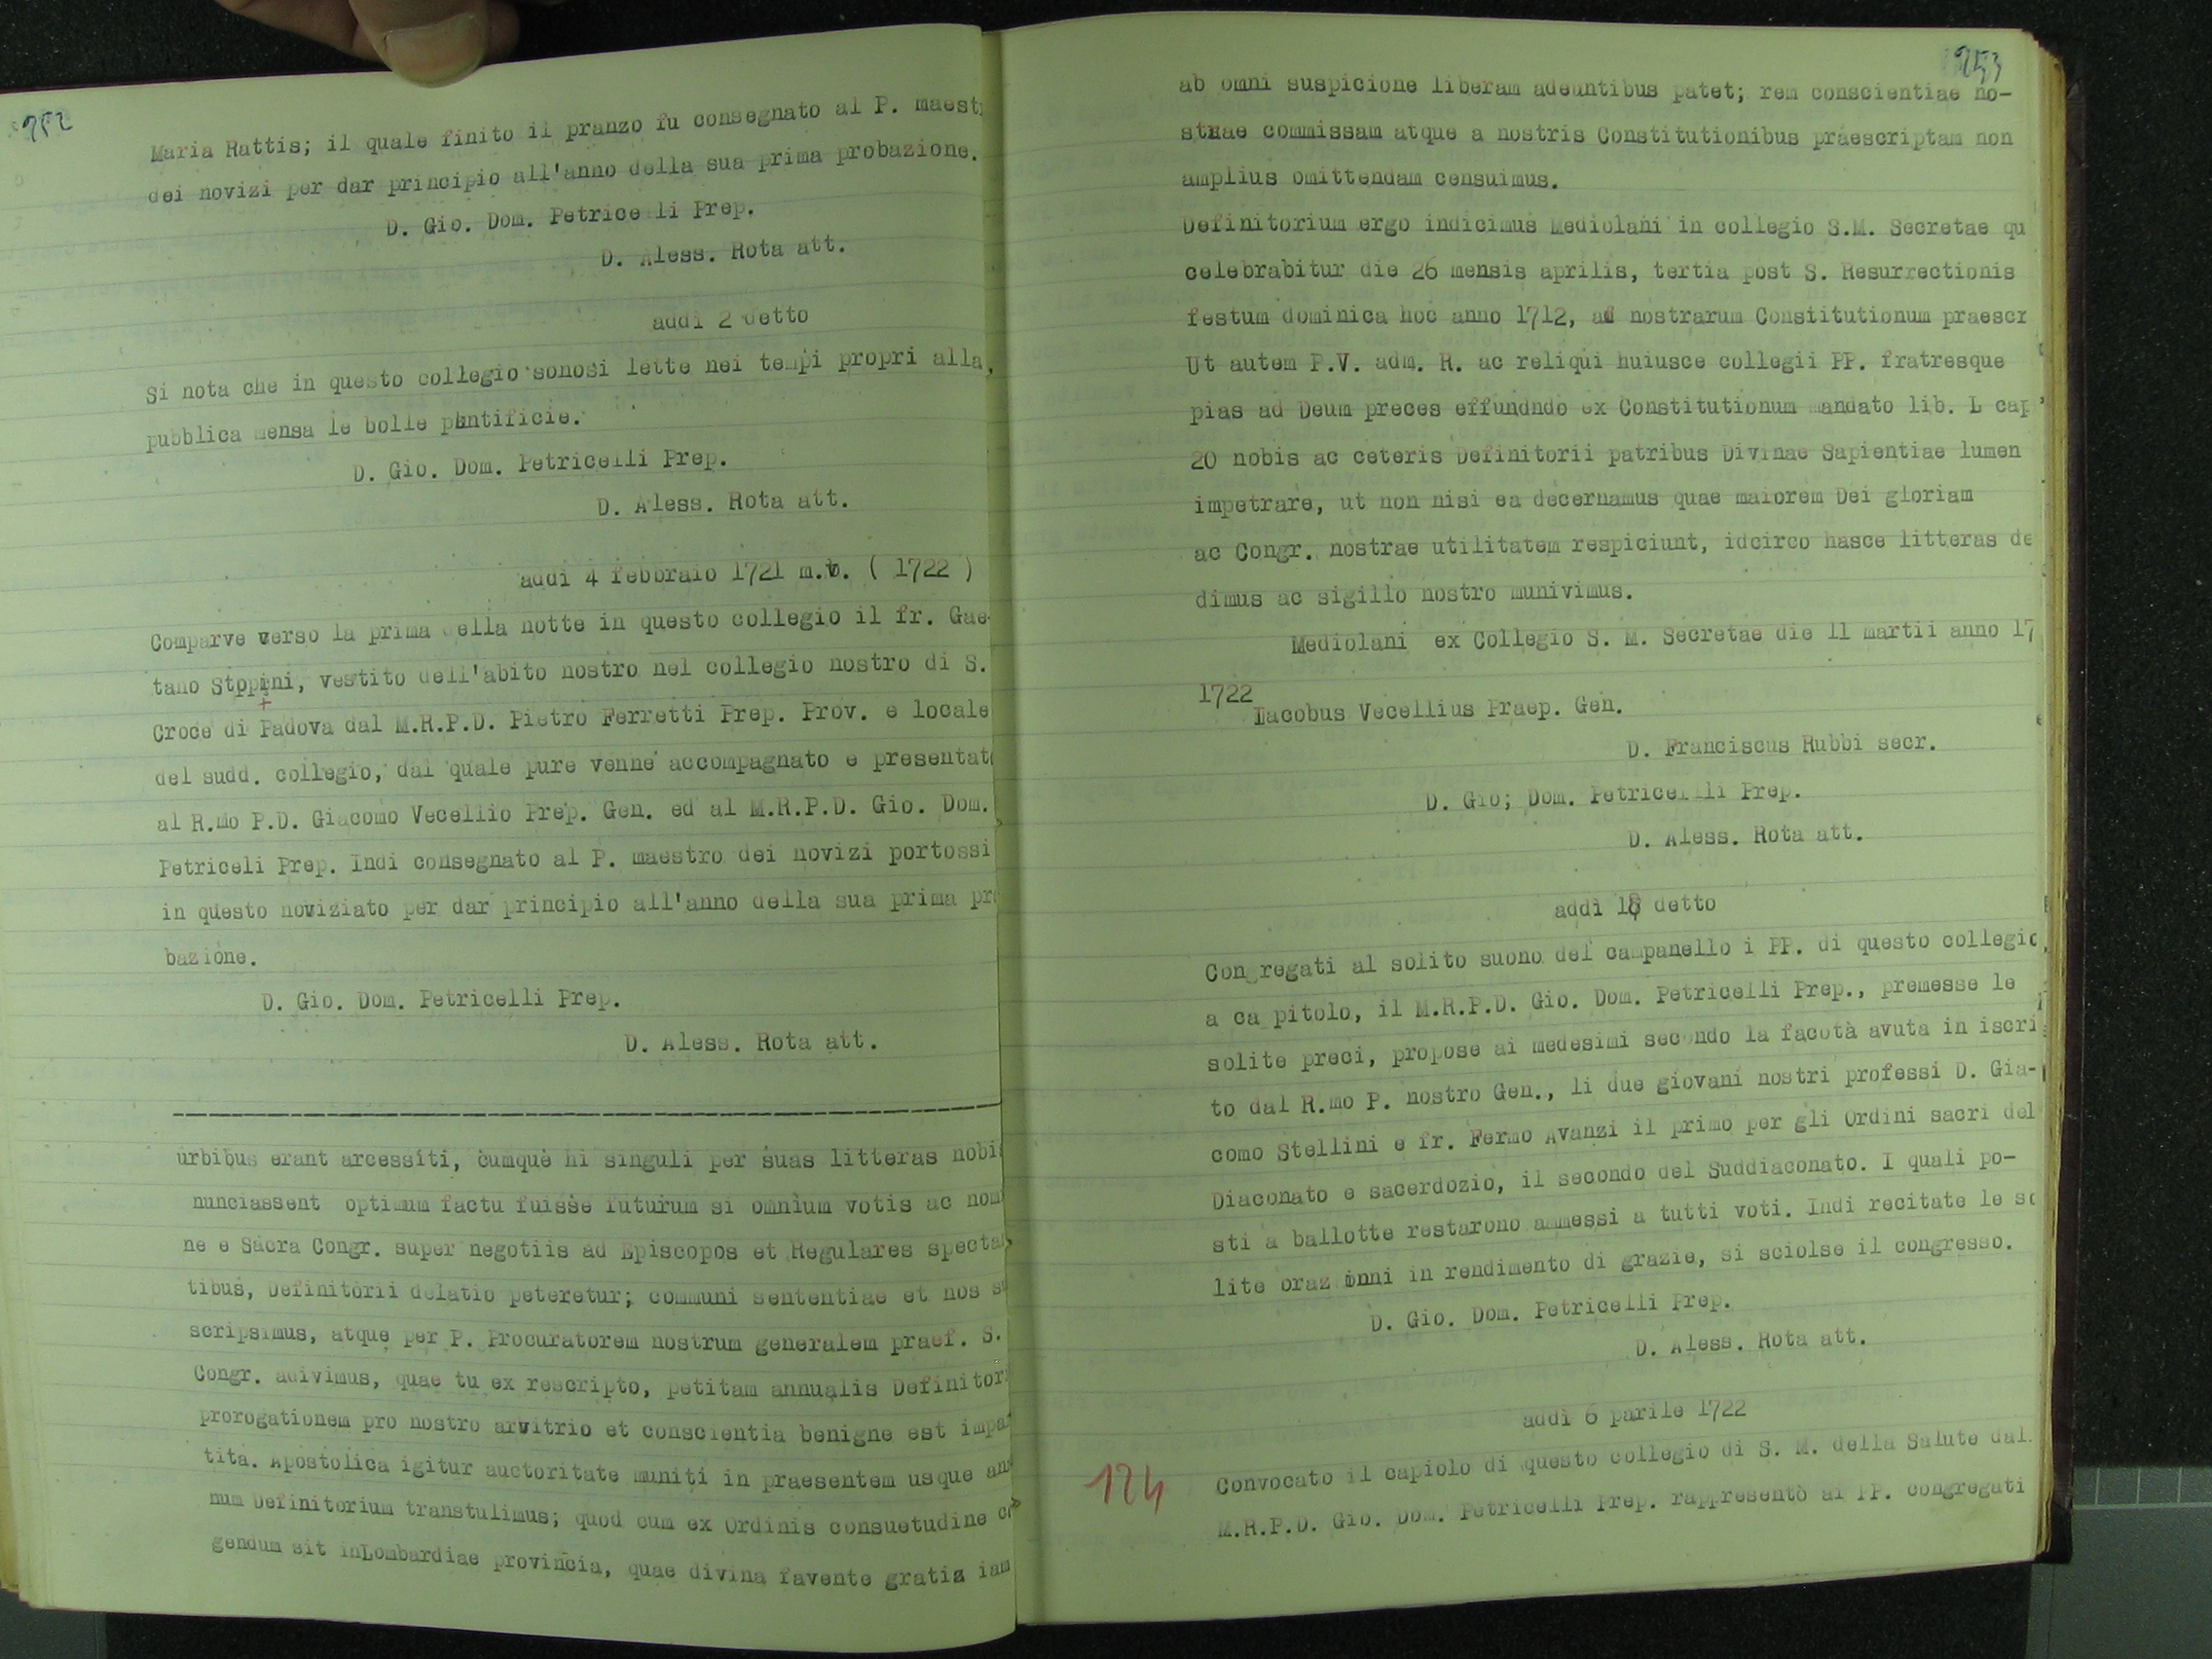 252
Maria Rattis; il quale finito il pranzo fu consegnato al P. maest
dei novizi per dar principio all'anno della sua prima probazione.
D. Gio. Dom. Petrice li Prep.
D. Aless. Rota att.
addì 2 detto
Si nota che in questo collegio sonosi lette nei tempi propri alla
pubblica mensa le bolle pontificie.
D. Gio. Dom. Petricelli Prep.
D. Aless. Rota att.
addì 4 febbraio 1721 m.v. ( 1722 )
Comparve verso la prima della notte in questo collegio il fr. Gae-
tano Stppini, vestito dell'abito nostro nel collegio nostro di S.
Croce di Padova dal M.R.P.D. Pietro Ferretti Prep. Prov. e locale
del sudd. collegio, dal quale pure venne accompagnato e presentato
al R.mo P.D. Giacomo Vecellio Prep. Gen. ed al M.R.P.D. Gio. Dom.
Petriceli Prep. Indi consegnato al P. maestro dei novizi portossi
in questo noviziato per dar principio all'anno della sua prima pro
bazione.
D. Gio. Dom. Petricelli Prep.
D. Aless. Rota att.
urbibus erant arcessiti, cumquè hi singuli per suas litteras nobis
nunciassent optimum factu fuisse futurum si omnium votis ac nomi
ne e Sacra Congr. super negotiis ad Episcopos et Regulares spectan
tibus, Definitorii delatio peteretur; communi sententiae et nos su
scripsimus, atque per P. Procuratorem nostrum generalem praef. S.
Congr. adivimus, quae tu ex rescripto, petitam annualis Definitori
prorogationem pro nostro arvitrio et conscientia benigne est impar
tita. Apostolica igitur auctoritate muniti in praesentem usque an
num Definitorium transtulimus; quod cum ex Ordinis consuetudine co
gendum sit inLombardiae provincia, quae divina favente gratia iam
253
ab omni suspicione liberam adeuntibus patet; rem conscientiae no-
strae commissam atque a nostris Constitutionibus praescriptam non
amplius omittendam censuimus.
Definitorium ergo indicimus Mediolani in collegio S.M. Secretae qu
celebrabitur die 26 mensis aprilis, tertia post S. Resurrectionis
festum dominica hoc anno 1712, ad nostrarum Constitutionum praescr
Ut autem P.V. adm. R. ac reliqui huiusce collegii PP. fratresque
pias ad Deum preces effundndo ex Constitutionum mandato lib. L cap
20 nobis ac ceteris Definitorii patribus Divinae Sapientiae lumen
impetrare, ut non nisi ea decernamus quae maiorem Dei gloriam
ac Congr. nostrae utilitatem respiciunt, idcirco hasce litteras de
dimus ac sigillo nostro munivimus.
Mediolani ex Collegio S. M. Secretae die 11 martii anno 17
1722
Iacobus Vecellius Praep. Gen.
D. Franciscus Rubbi secr.
D. Gio; Dom. Petricelli Prep.
D. Aless. Rota att.
addì 18 detto
Con regati al solito suono del campanello i PP. di questo collegio
a ca pitolo, il M.R.P.D. Gio. Dom. Petricelli Prep., premesse le
solite preci, propose ai medesimi secondo la facotà avuta in iscri
to dal R.mo P. nostro Gen., li due giovani nostri professi D. Gia-
como Stellini e fr. Fermo Avanzi il primo per gli Ordini sacri del
Diaconato e sacerdozio, il secondo del Suddiaconato. I quali po-
sti a ballotte restarono ammessi a tutti voti. Indi recitate le so
lite oraz onni in rendimento di grazie, si sciolse il congresso.
D. Gio. Dom. Petricelli Prep.
D. Aless. Rota att.
addì 6 parile 1722
124
Convocato il capiolo di questo collegio di S. M. della Salute dal
M.R.P.D. Gio. Dom. Petricelli Prep. rappresentò ai PP. congregati